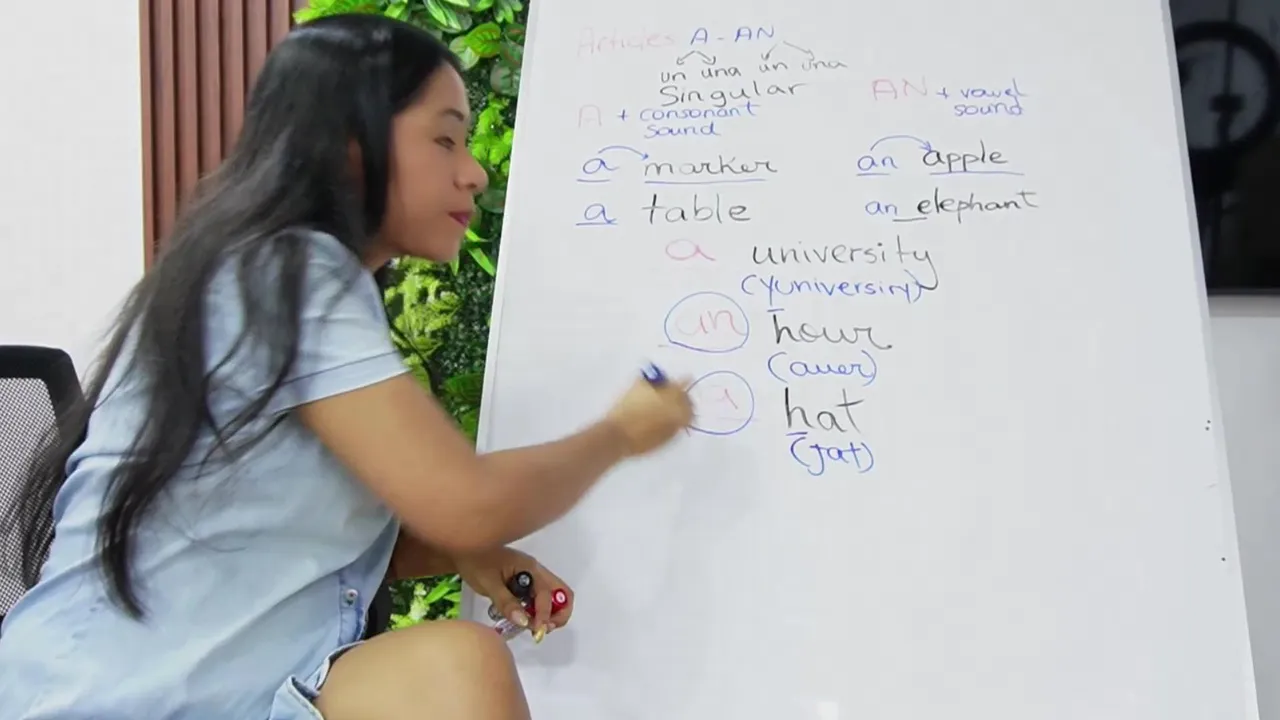 Articles A - AN
un una un una
Singular
A + consonant sound
AN + vowel sound
a marker
an apple
a table
an elephant
a university
(Yuniversiry)
an hour
(auer)
a hat
(jat)